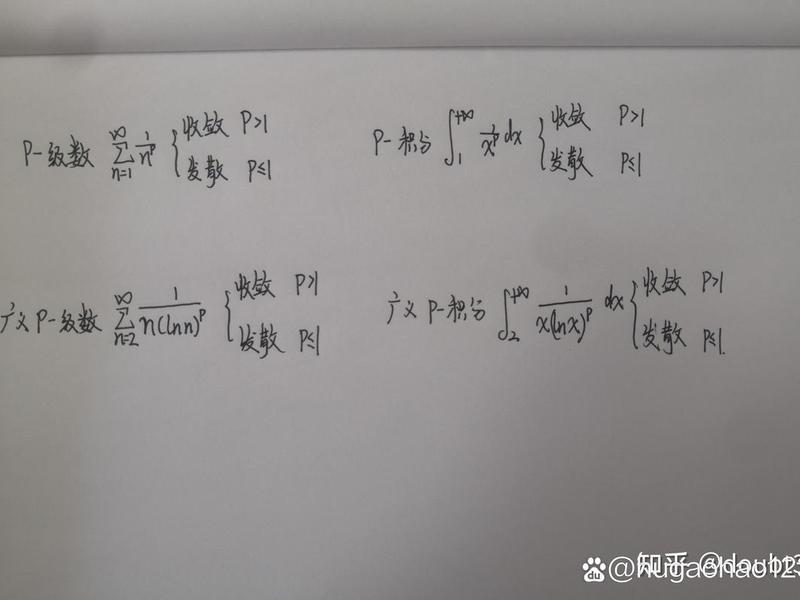 P-级数 ∑_{n=1}^{∞} 1/n^p { 收敛 P>1 发散 P≤1
P-积分 ∫_1^{+∞} 1/x^p dx { 收敛 P>1 发散 P≤1
广义 P-级数 ∑_{n=2}^{∞} 1/(n(lnn)^p) { 收敛 P>1 发散 P≤1
广义 P-积分 ∫_2^{+∞} 1/(x(lnx)^p) dx { 收敛 P>1 发散 P≤1.
知乎